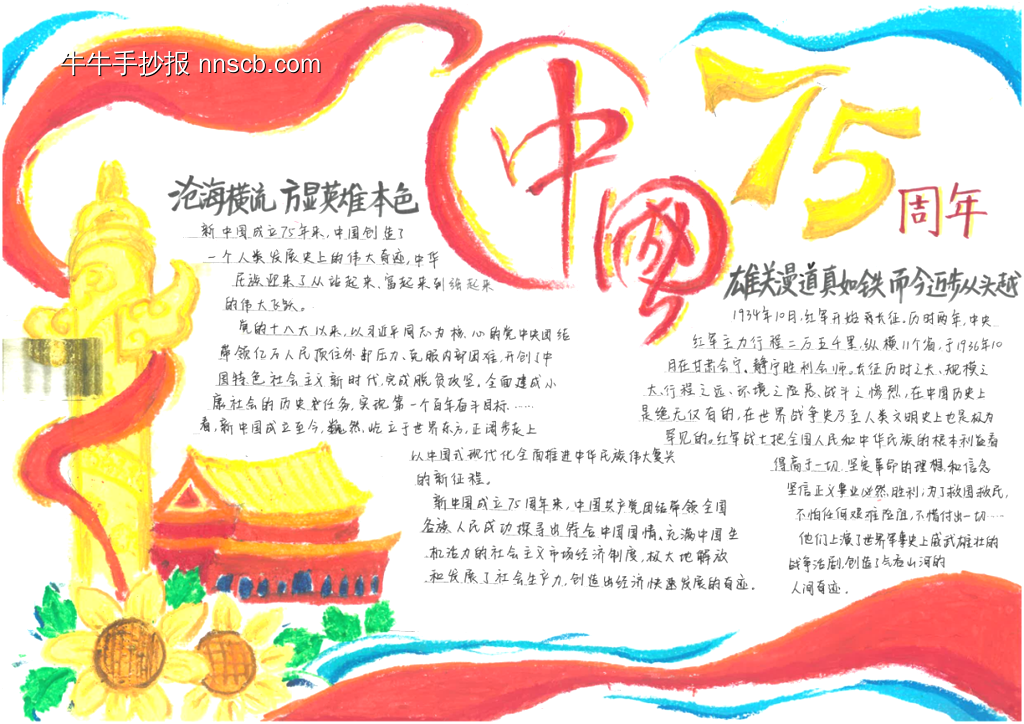 牛牛手抄报 nnscb.com
中國
75
周年
沧海横流 方显英雄本色
新中国成立75年来,中国创造了
一个人类发展史上的伟大奇迹,中华
民族迎来了从站起来、富起来到强起来
的伟大飞跃。
党的十八大以来,以习近平同志为核心的党中央团结
带领亿万人民顶住外部压力、克服内部困难,开创了中
国特色社会主义新时代,完成脱贫攻坚。全面建成小
康社会的历史任务,实现第一个百年奋斗目标……
看,新中国成立至今,巍然屹立于世界东方,正阔步走上
以中国式现代化全面推进中华民族伟大复兴
的新征程。
新中国成立75周年来,中国共产党团结带领全国
各族人民成功探寻出符合中国国情、充满中国生
机活力的社会主义市场经济制度,极大地解放
和发展了社会生产力,创造出经济快速发展的奇迹。
雄关漫道真如铁 而今迈步从头越
1934年10月,红军开始长征。历时两年,中央
红军主力行程二万五千里,纵横11个省,于1936年10
月在甘肃会宁、静宁胜利会师。长征历时之长、规模之
大、行程之远、环境之险恶、战斗之惨烈,在中国历史上
是绝无仅有的,在世界战争史乃至人类文明史上也是极为
罕见的。红军战士把全国人民和中华民族的根本利益看
得高于一切,坚定革命的理想和信念
坚信正义事业必然胜利;为了救国救民,
不怕任何艰难险阻,不惜付出一切……
他们上演了世界军事史上威武雄壮的
战争活剧,创造了气吞山河的
人间奇迹。